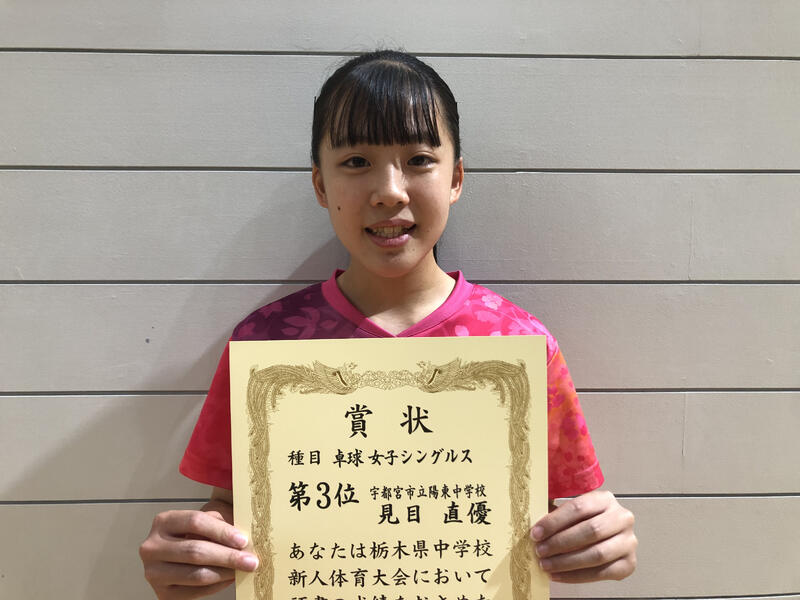 賞状
種目 卓球 女子シングルス
第3位 宇都宮市立陽東中学校
見目 直優
あなたは栃木県中学校
新人体育大会において